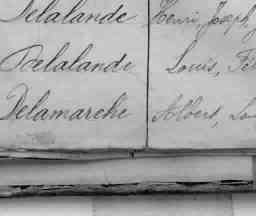 Delalande Henri, Joseph,
Delalande Louis, Fél
Delamarche Albert, Lou